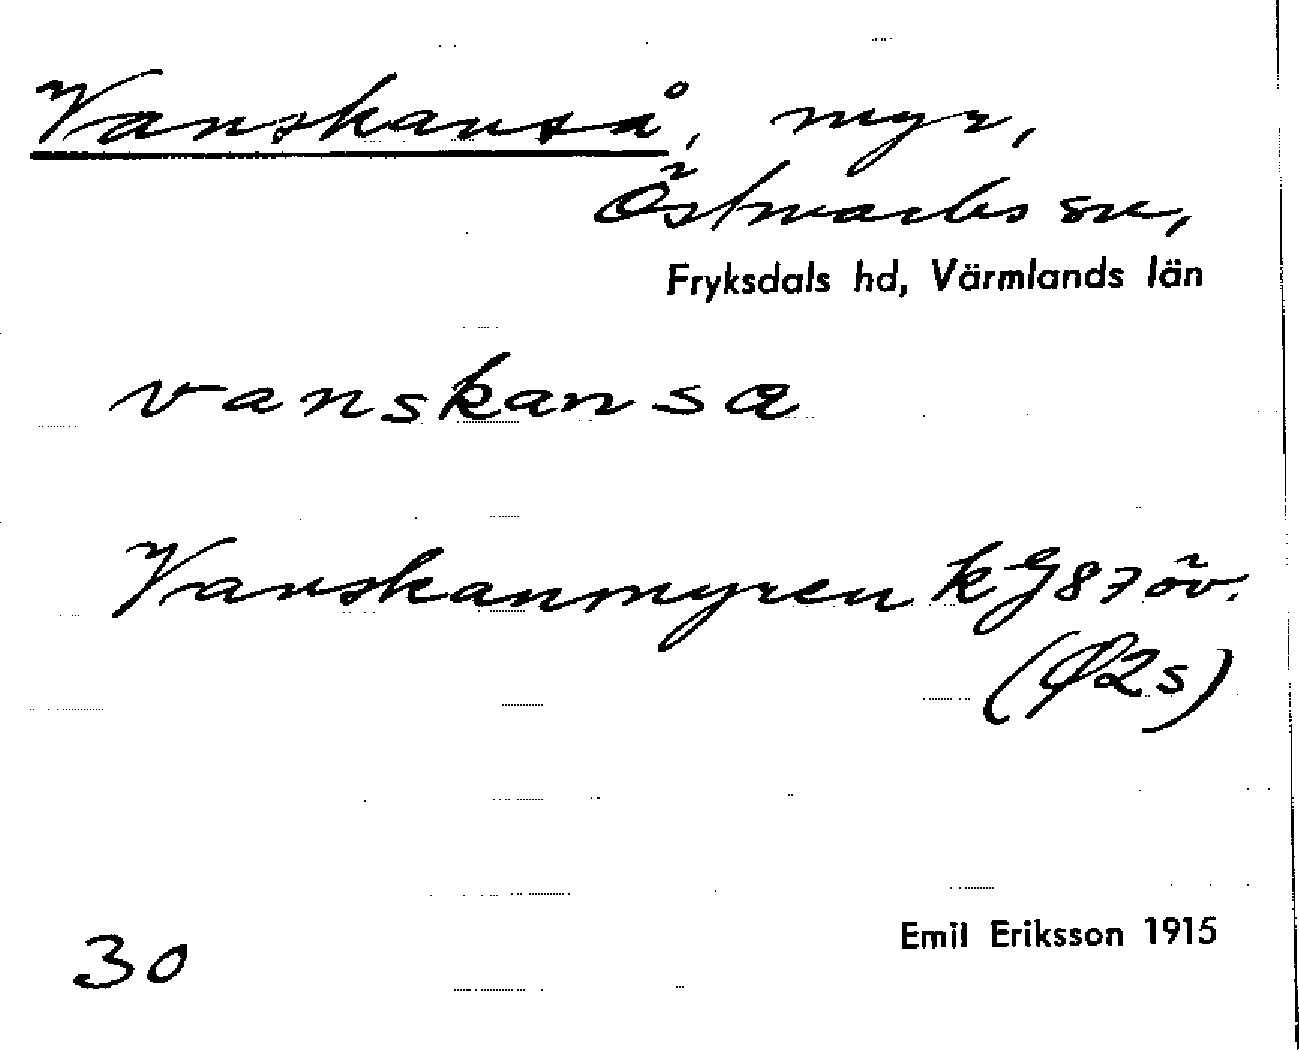 Vanskanså, myr,
Östmarks sn,
Fryksdals hd, Värmlands län
vanskansa
Vanskanmyren kg 87 öv.
(Ø2s)
30
Emil Eriksson 1915